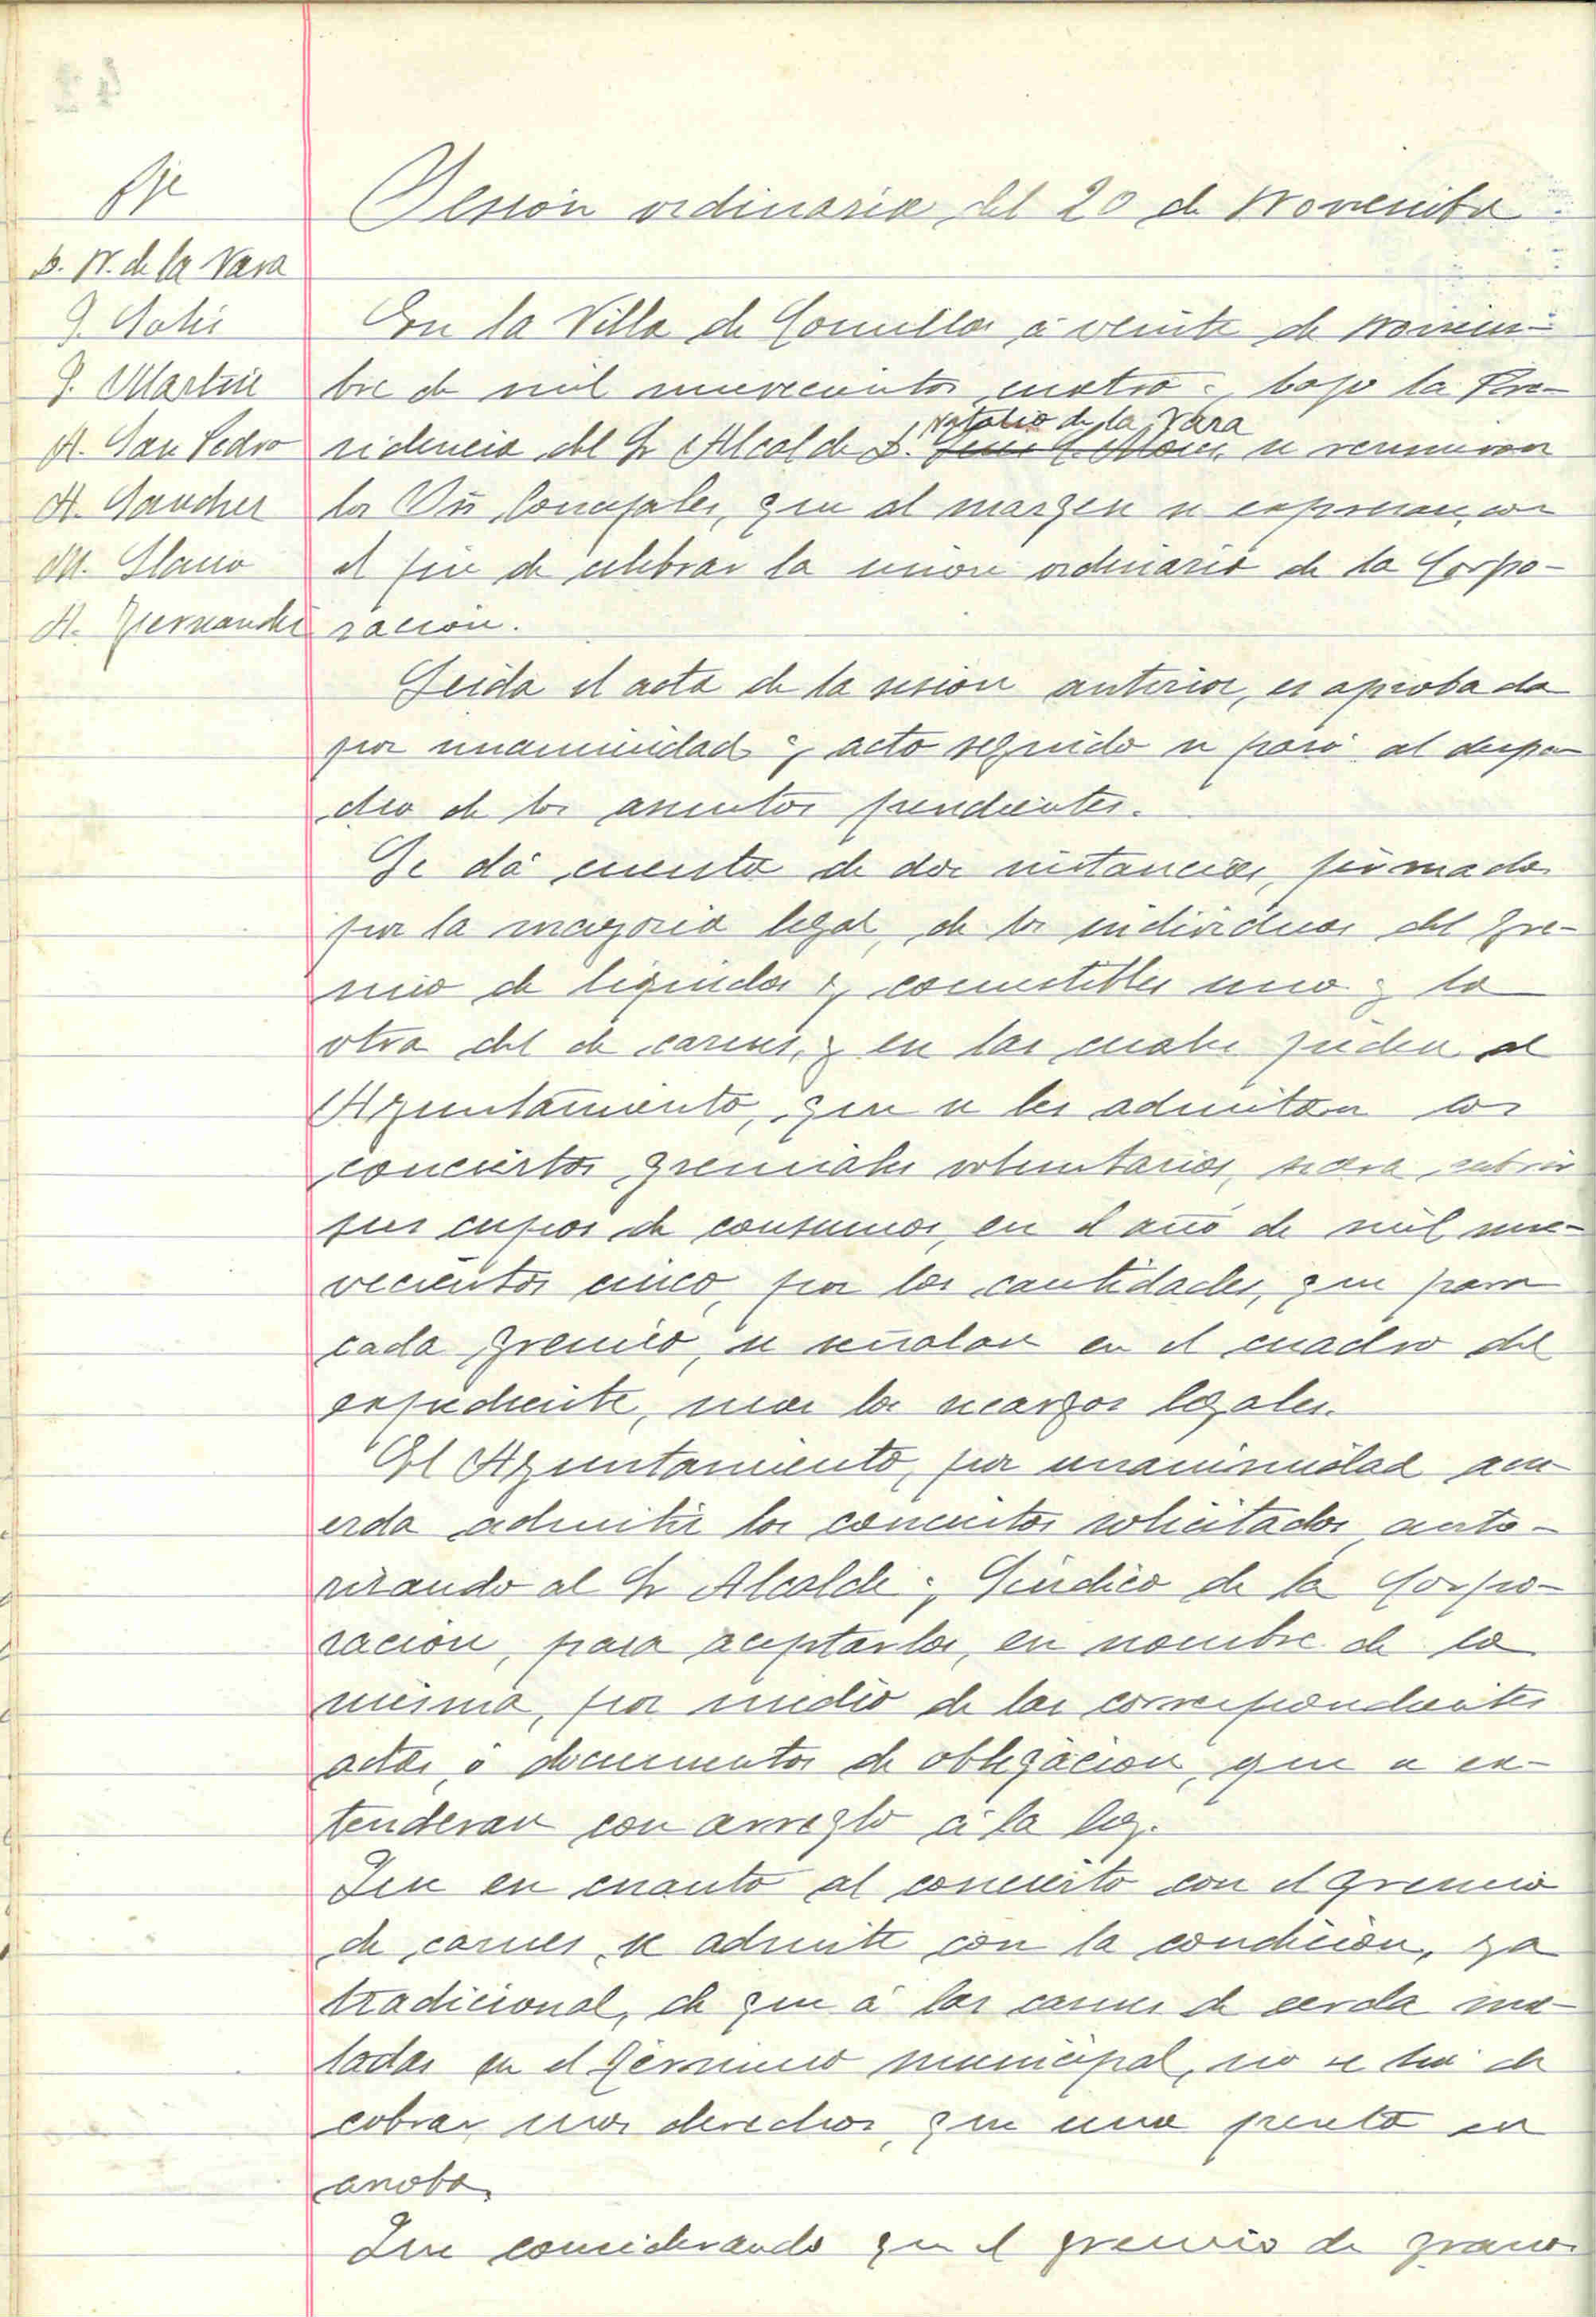 Sesión ordinaria del 20 de Noviembre
D. N. de la Vara
J. Martin
A. San Pedro
A. Sancher
M. Llano
A. Fernande
En la Villa de Comillas á veinte de Noviem-
bre de mil novecientos cuatro y, bajo la Pre-
sidencia del Sr Alcalde D. Natalio de la Vara se reunieron
los Srs Concejales, que al margen se expresan, con
el fin de celebrar la sesion ordinaria de la Corpo-
racion.
Leida el acta de la sesion anterior, es aprobada
por unanimidad y acto seguido se pasó al despa
cho de los asuntos pendientes.
Se dá cuenta de dos instancias, firmadas
por la mayoria legal, de los individuos del gre-
mio de liquidos y comestibles una y la
otra del de carnes, y en las cuales piden al
Ayuntamiento, que se les admitan los
conciertos gremiales voluntarios, para cubrir
sus cupos de consumos, en el año de mil nue-
vecientos cinco, por las cantidades, que para
cada gremio, se señalan en el cuadro del
expediente, mas los recargos legales.
El Ayuntamiento, por unanimidad acu
erda admitir los conciertos solicitados auto-
rizando al Sr Alcalde y Sindico de la Corpo-
racion, para aceptarlos, en nombre de la
misma, por medio de las correspondientes
actas, ó documentos de obligacion, que se ex-
tenderan con arreglo á la ley.
Que en cuanto al concierto con el gremio
de carnes se admite con la condicion, ya
tradicional, de que á las carnes de cerda ma-
tadas en el término municipal, no se ha de
cobrar mas derechos, que una peseta en
arroba
Que considerando que el gremio de granos